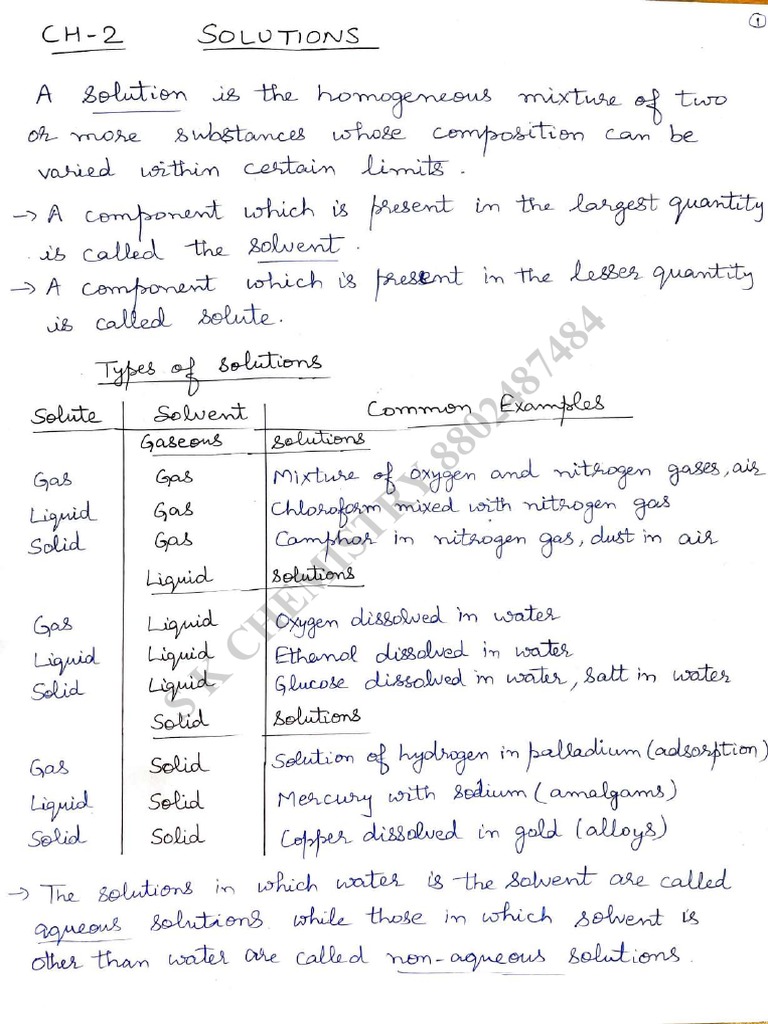 1
CH-2 SOLUTIONS
A solution is the homogeneous mixture of two
or more substances whose composition can be
varied within certain limits.
→ A component which is present in the largest quantity
is called the solvent.
→ A component which is present in the lesser quantity
is called solute.
Types of solutions
Solute Solvent Common Examples
Gaseous solutions
Gas Gas Mixture of oxygen and nitrogen gases, air
Liquid Gas Chloroform mixed with nitrogen gas
Solid Gas Camphor in nitrogen gas, dust in air
Liquid solutions
Gas Liquid Oxygen dissolved in water
Liquid Liquid Ethanol dissolved in water
Solid Liquid Glucose dissolved in water, salt in water
Solid solutions
Gas Solid Solution of hydrogen in palladium (adsorption)
Liquid Solid Mercury with sodium (amalgams)
Solid Solid Copper dissolved in gold (alloys)
→ The solutions in which water is the solvent are called
aqueous solutions while those in which solvent is
other than water are called non-aqueous solutions.
S K CHEMISTRY 8802487484